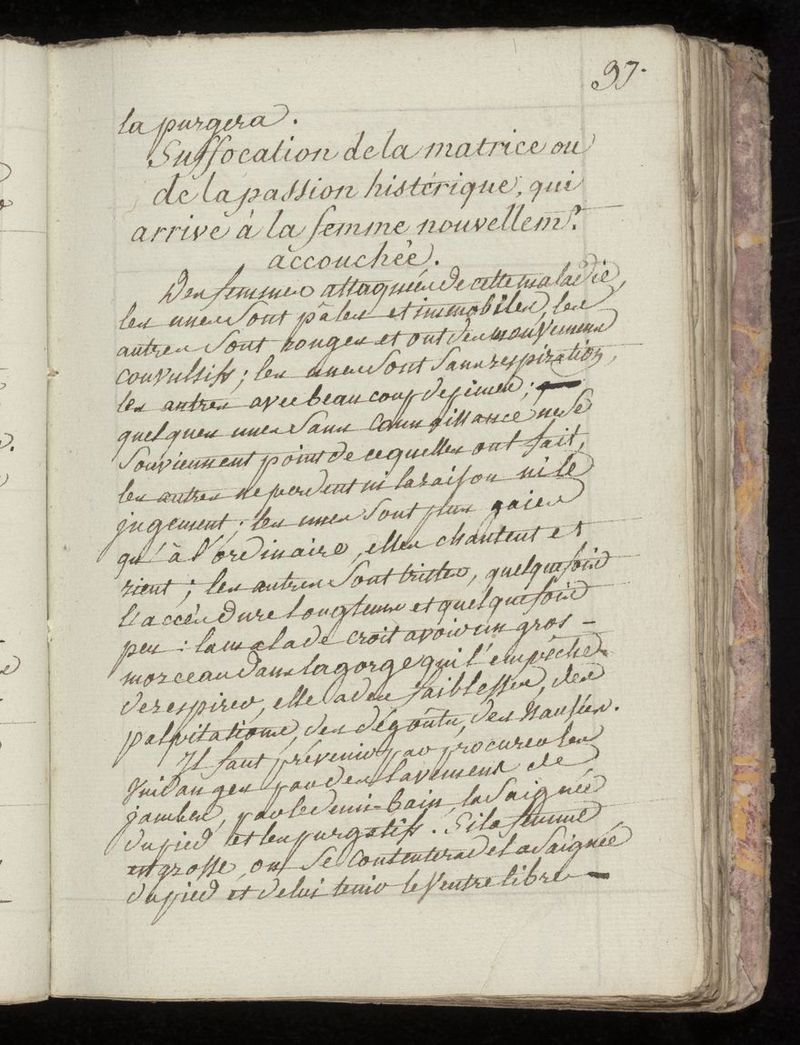 37.
la purgera.
Suffocation de la matrice ou
de la passion histérique, qui
arrive à la femme nouvellemt.
accouchée.
Des femmes attaquées de cette maladie,
les unes sont pâles et immobiles, les
autres sont rouges et ont des mouvemens
convulsifs; les unes sont sans respiration,
les autres avec beaucoup de
quelques unes sans connaissance ne se
souviennent point de ce quelles ont fait,
les autres ne perdent ni la raison ni le
jugement; les unes sont plus gaies
qu'à l'ordinaire, elles chantent et
rient; les autres sont tristes, quelquefois
l'accès dure longtems et quelquefois
peu: la malade croit avoir un gros
morceau dans la gorge qui l'empêche
de respirer, elle a des faiblesses, des
palpitations, des dégoûts, des nausées.
Il faut prévenir par procurer les
vuidanges par des lavemens de
jambes, par le demi-bain, la saignée
du pied et les purgatifs. Si la femme
est grosse, on se contentera de la saignée
du pied et de lui tenir le ventre libre